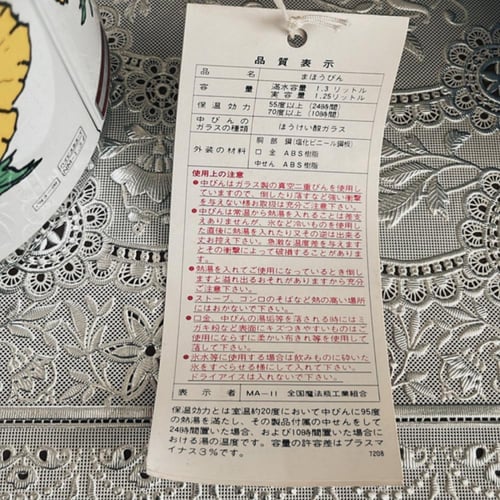 品質表示
品名 まほうびん
容量 満水容量 1.3リットル
実容量 1.25リットル
保温効力 55度以上(24時間)
70度以上(10時間)
中びんの
ガラスの種類 ほうけい酸ガラス
外装の材料 胴部 鋼(塩化ビニール鋼板)
口金 ABS樹脂
中せん ABS樹脂
使用上の注意
●中びんはガラス製の真空二重びんを使用し
ていますので、倒したり落すなど強い衝撃
を与えない様お取扱は充分ご注意下さい。
●中びんは常温から熱湯を入れることは差支
えありませんが、氷など冷いものを使用し
た直後に熱湯を入れたり又その逆は出来る
丈お控え下さい。急激な温度差を与えます
とその衝撃によって破損することがありま
す。
●熱湯を入れてご使用になっているとき倒し
ますと溢れ出るおそれがありますから充分
ご注意下さい。
●ストーブ、コンロのそばなど熱の高い場所
にはおかないで下さい。
●口金、中びんの湯垢等を落される時にはミ
ガキ粉など表面にキズつきやすいものはご
使用にならずに柔かい布きれ等を使用して
落して下さい。
●氷水等に使用する場合は飲みものに砕いた
氷をすべらせる様にして入れて下さい。
ドライアイスは入れないで下さい。
表示者 MA-11 全国魔法瓶工業組合
保温効力とは室温約20度において中びんに95度
の熱湯を満たし、その製品付属の中せんをして
24時間置いた場合、および10時間置いた場合に
おける湯の温度です。容量の許容差はプラスマ
イナス3%です。
1208